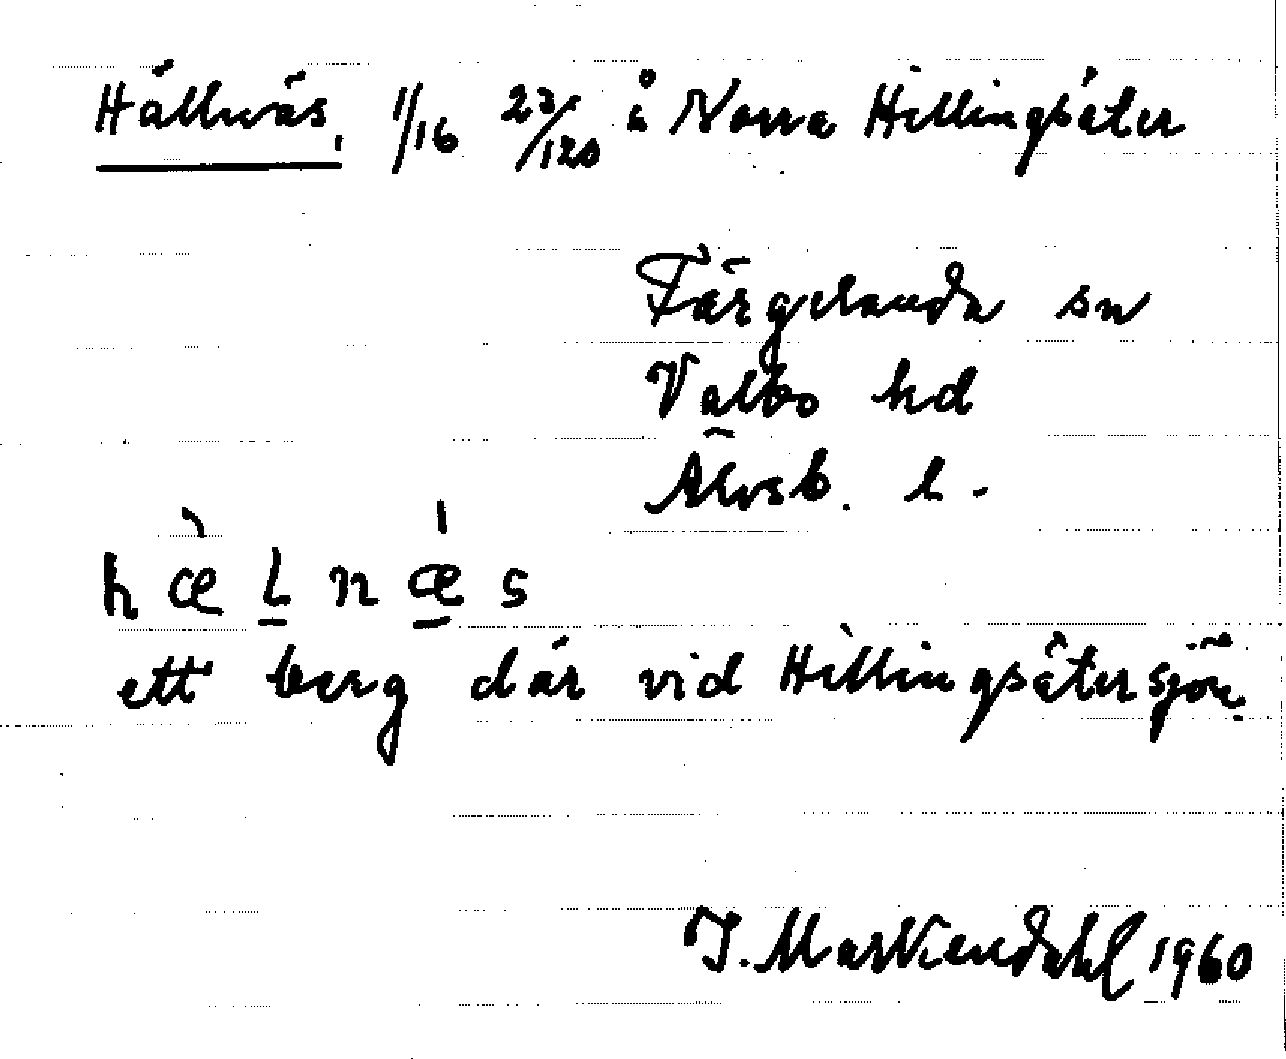 Hällnäs, 1/16 27/120 å Norra Hillingsäter
Färgelanda sn
Valbo hd
Älvsb. l.
hæ̀lnǽs
ett berg där vid Hillingsätersjön.
J. Markendahl 1960